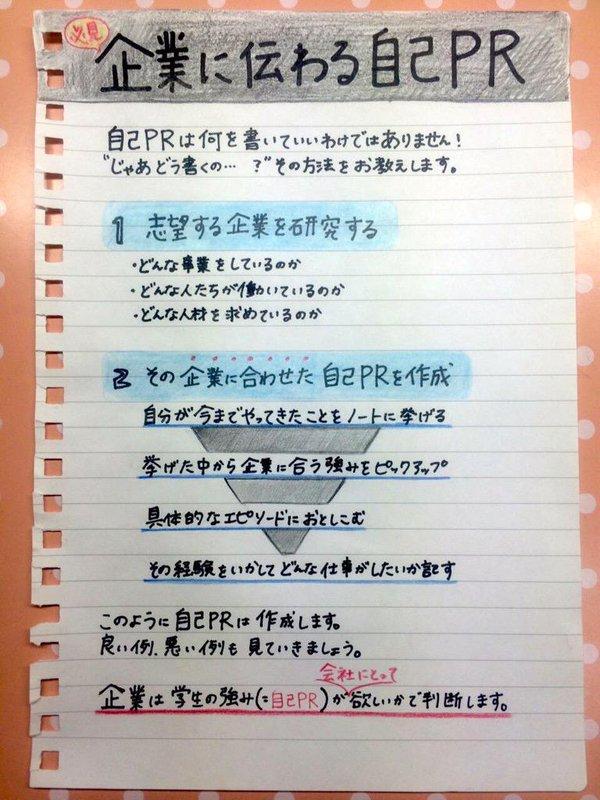 必見
企業に伝わる自己PR
自己PRは何を書いていいわけではありません!
"じゃあどう書くの… ?"その方法をお教えします。
1 志望する企業を研究する
・どんな事業をしているのか
・どんな人たちが働いているのか
・どんな人材を求めているのか
2 その企業に合わせた自己PRを作成
自分が今までやってきたことをノートに挙げる
挙げた中から企業に合う強みをピックアップ
具体的なエピソードにおとしこむ
その経験をいかしてどんな仕事がしたいか記す
このように自己PRは作成します。
良い例、悪い例も見ていきましょう。
会社にとって
企業は学生の強み(=自己PR)が欲しいかで判断します。